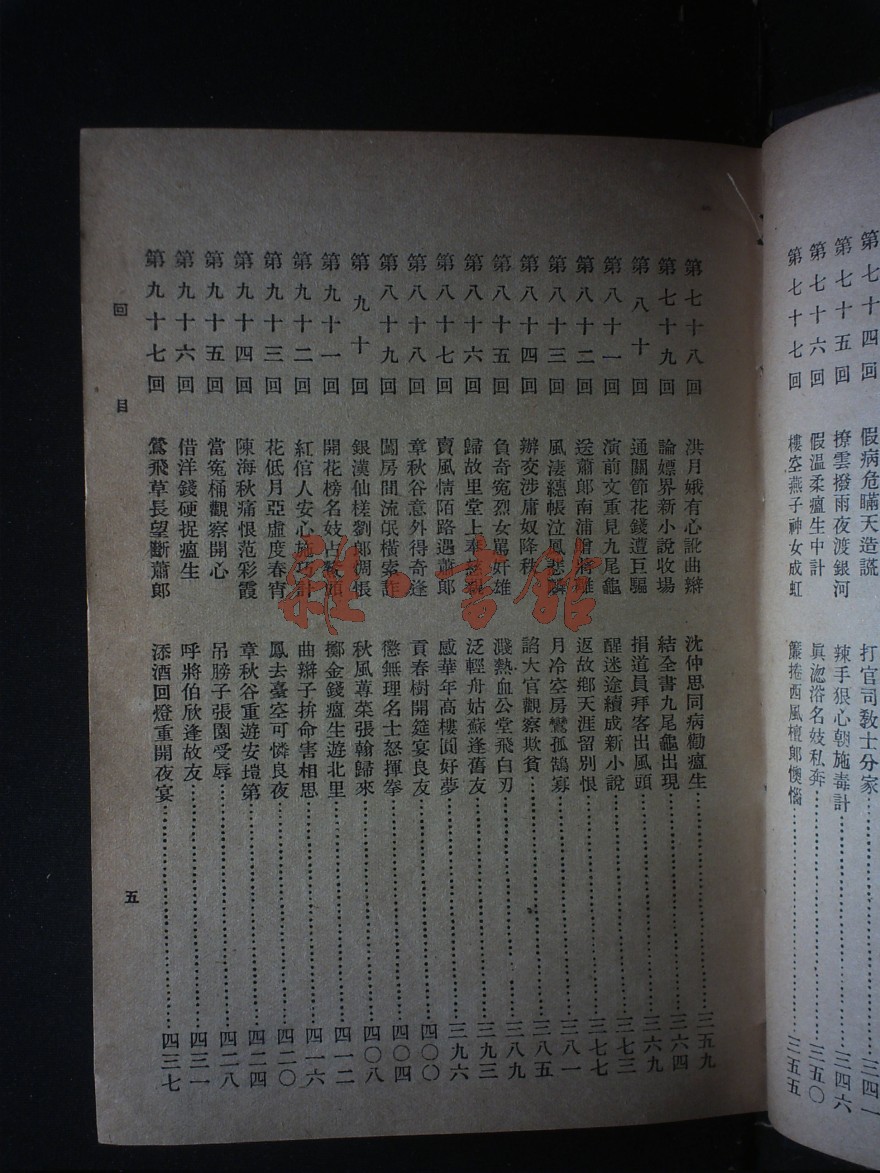 第七十四回 假病危瞞天造謊 打官司敎士分家……三四一
第七十五回 撩雲撥雨夜渡銀河 辣手狠心朝施毒計……三四六
第七十六回 假温柔瘟生中計 眞淴浴名妓私奔……三五〇
第七十七回 樓空燕子神女成虹 簾捲西風檀郎懊惱……三五五
第七十八回 洪月娥有心訛曲辮 沈仲思同病勸瘟生……三五九
第七十九回 論嫖界新小說收場 結全書九尾龜出現……三六四
第八十回 通關節花錢遭巨騙 捐道員拜客出風頭……三六九
第八十一回 演前文重見九尾龜 醒迷途續成新小說……三七三
第八十二回 送蕭郎南浦曾將離 返故鄉天涯留別恨……三七七
第八十三回 風淒繐帳泣鳳悲麟 月冷空房鸞孤鵠寡……三八一
第八十四回 辦交涉庸奴降秩 諂大官觀察欺貧……三八五
第八十五回 負奇寃烈女罵奸雄 濺熱血公堂飛白刃……三八九
第八十六回 歸故里堂上奉慈親 泛輕舟姑蘇逢舊友……三九三
第八十七回 賣風情陌路遇蕭郎 感華年高樓圓好夢……三九六
第八十八回 章秋谷意外得奇逢 貢春樹開筵宴良友……四〇〇
第八十九回 闖房間流氓橫索詐 懲無理名士怒揮拳……四〇四
第九十回 銀漢仙槎劉郎惆悵 秋風蓴菜張翰歸來……四〇八
第九十一回 開花榜名妓占鰲頭 擲金錢瘟生遊北里……四一二
第九十二回 紅倌人安心施巧計 曲辮子拚命害相思……四一六
第九十三回 花低月亞虛度春宵 鳳去臺空可憐良夜……四二〇
第九十四回 陳海秋痛恨范彩霞 章秋谷重遊安塏第……四二四
第九十五回 當寃桶觀察開心 吊膀子張園受辱……四二八
第九十六回 借洋錢硬捉瘟生 呼將伯欣逢故友……四三一
第九十七回 鶯飛草長望斷蕭郎 添酒回燈重開夜宴……四三七
回目
五
雜·書館